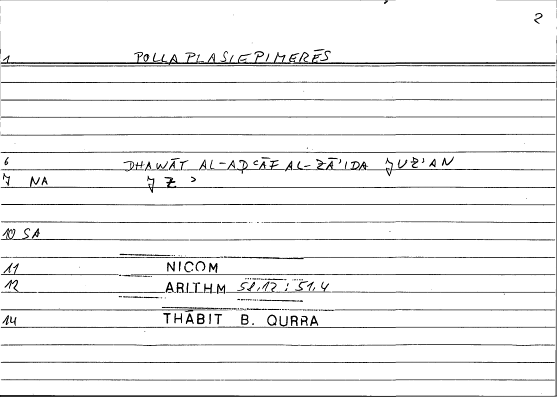 2
1 POLLAPLASIEPIMERĒS
6 DHAWĀT AL-AḌʿĀF AL-ZĀʾIDA ǦUZʾAN
7 NA ǦZʾ
10 SA
11 NICOM
12 ARITHM 58,12 ; 51,4
14 THĀBIT B. QURRA